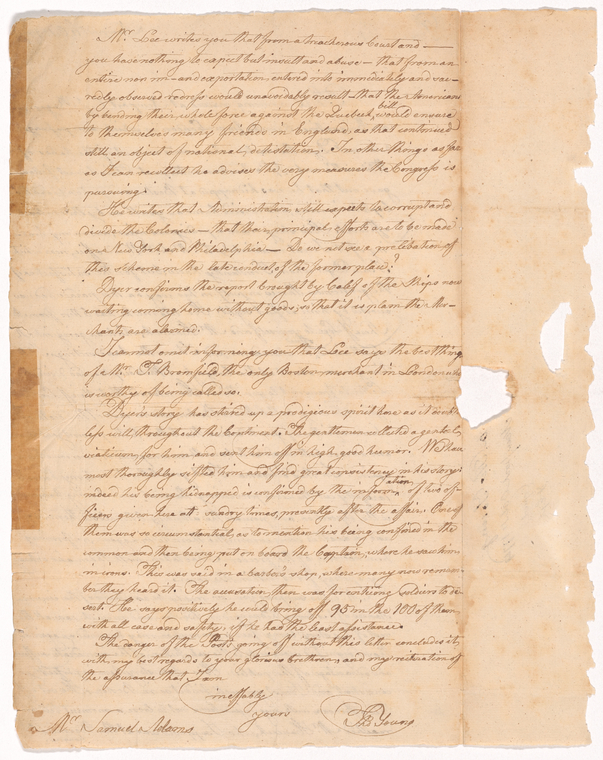 Mr. Lee writes you that from a treacherous Court and —
you have nothing to expect but insult and abuse — that from an
entire non im- and exportation, entered into immediately and sac-
redly observed redress would unavoidably result — that the Americans
by bending their whole force against the Quebeck bill, would ensure
to themselves many friends in England, as that continued
still an object of national detestation. In other things as far
as I can recollect he advises the very measures the Congress is
pursuing.
He writes that Administration still expects to corrupt and
divide the Colonies — that their principal efforts are to be made
on New York and Philadelphia — Do we not see a prelibation of
this scheme in the late conduct of the former place?
Dyer confirms the report brought by Calef of the Ships now
waiting coming home without goods; so that it is plain the Mer-
chants are alarmed.
I cannot omit informing you that Lee says the best things
of a Mr. T. Bromfield, the only Boston merchant in London who
is worthy of being called so.
Dyer's story has stirred up a prodigious spirit here as it doubt
less will, throughout the Continent. The gentlemen collected a genteel
viaticum for him and sent him off in high good humor. We have
most thoroughly sifted him and find great consistency in his story:
indeed his being kidnapped is confirmed by the information of two of-
ficers given here at sundry times, presently after the affair. One of
them was so circumstantial, as to mention his being confined in the
common and then being put on board the Captain, where he saw him
in irons. This was said in a barber's shop, where many now remem-
ber they heard it. The accusation then was for enticing soldiers to de-
sert. He says positively he could bring off 95 in the 100 of them
with all ease and safety, if he had the least assistance.
The danger of the Post's going off without this letter concludes it,
with my best regards to your glorious brethren, and my reiteration of
the assurance that I am
ineffably
yours
Ts Young
Mr. Samuel Adams